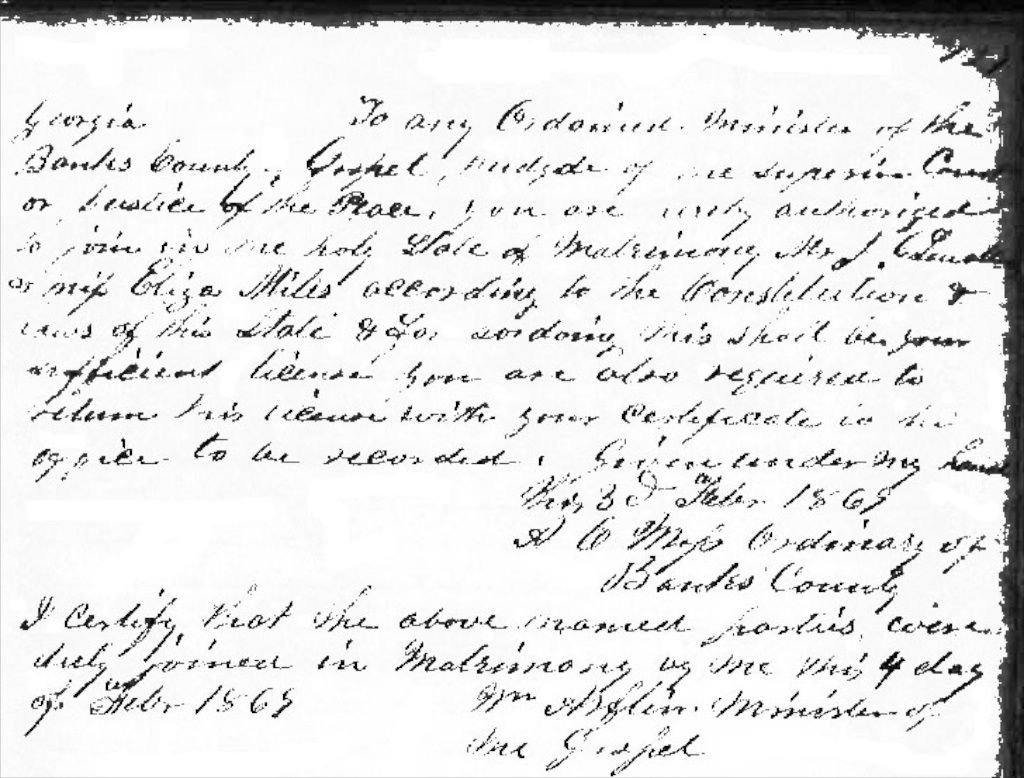 Georgia To any Ordained Minister of the
Banks County, Gospel, Judge of the Superior Court
or Justice of the Peace. you are herby authorized
to join in the holy State of Matrimony Mr J.
& miss Eliza Miles according to the Constitution &
laws of this State & for so doing this shall be your
sufficient license you are also required to
return this license with your Certificate to the
office to be recorded. Given under my hand
this 3d of Febr 1869
A C Moss Ordinary of
Banks County
I Certify that the above named parties were
duly joined in Matrimony by me this 4 day
of Febr 1869 Wm Minister of
the Gospel